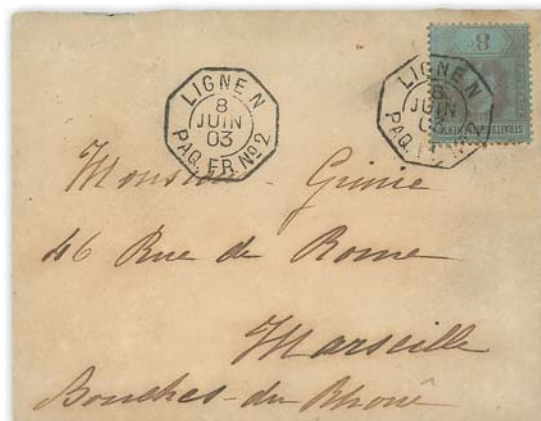 LIGNE N
8
JUIN
03
PAQ. FR. Nº 2
LIGNE N
8
JUIN
03
PAQ. FR. Nº 2
8c
STRAITS SETTLEMENTS
Monsieur Grinie
46 Rue de Rome
Marseille
Bouches-du-Rhône